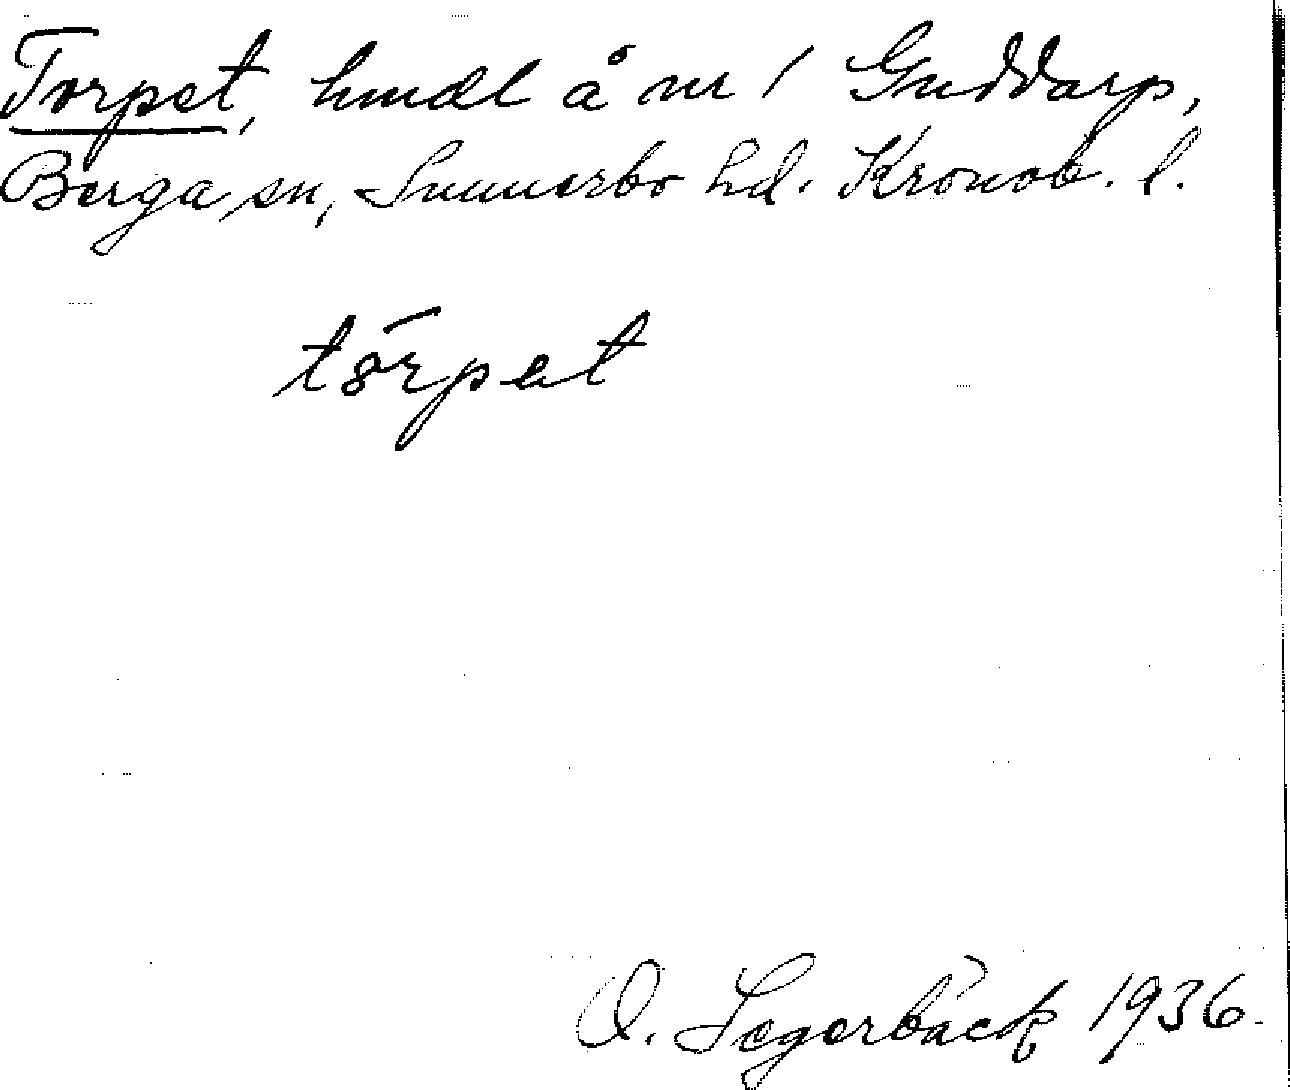 Torpet, hmdl å nr 1 Guddarp,
Berga sn, Sunnerbo hd. Kronob. l.
tørpet
O. Segerbäck 1936.